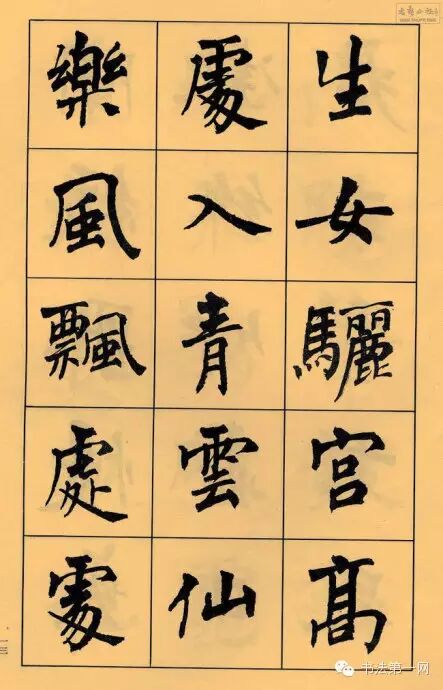 生女驪宫髙
處入青雲仙
樂風飄處處
书法第一网